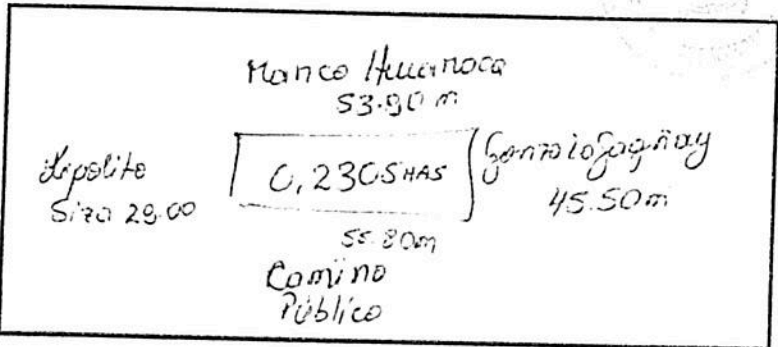 Manco Huanoca
53.90 m
Hipolito
Siza 29.00
0,2305 HAS
Gonzalo Gagñay
45.50 m
55.80 m
Camino
Público